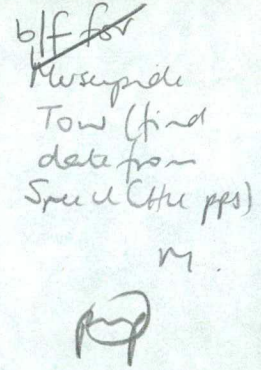 b/f for
Merseyside
Tour (find
date from
Speech (the pps)
M.